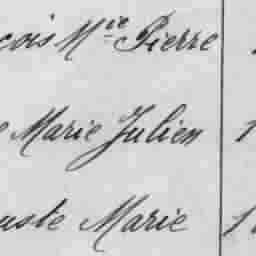 çois Mie Pierre
e Marie Julien 1
uste Marie 1